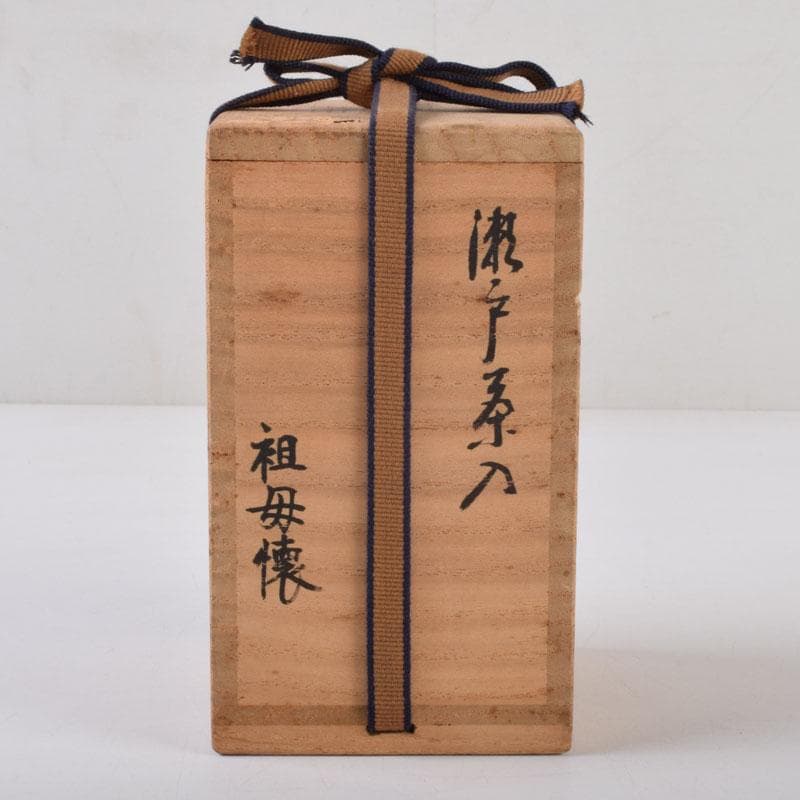 瀬戸茶入
祖母懐